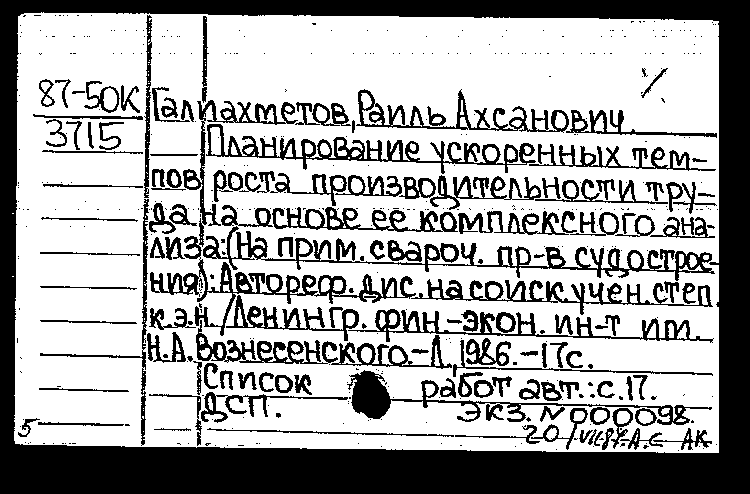 87-50К
3715
Галиахметов, Раиль Ахсанович.
Планирование ускоренных тем-
пов роста производительности тру-
да на основе ее комплексного ана-
лиза: (На прим. свароч. пр-в судострое-
ния): Автореф. дис. на соиск. учен. степ.
к.э.н. / Ленингр. фин.-экон. ин-т им.
Н.А. Вознесенского. - Л., 1986. - 17с.
Список работ авт.: с. 17.
ДСП. Экз. N 000098.
5 20/VII87. А.С АК